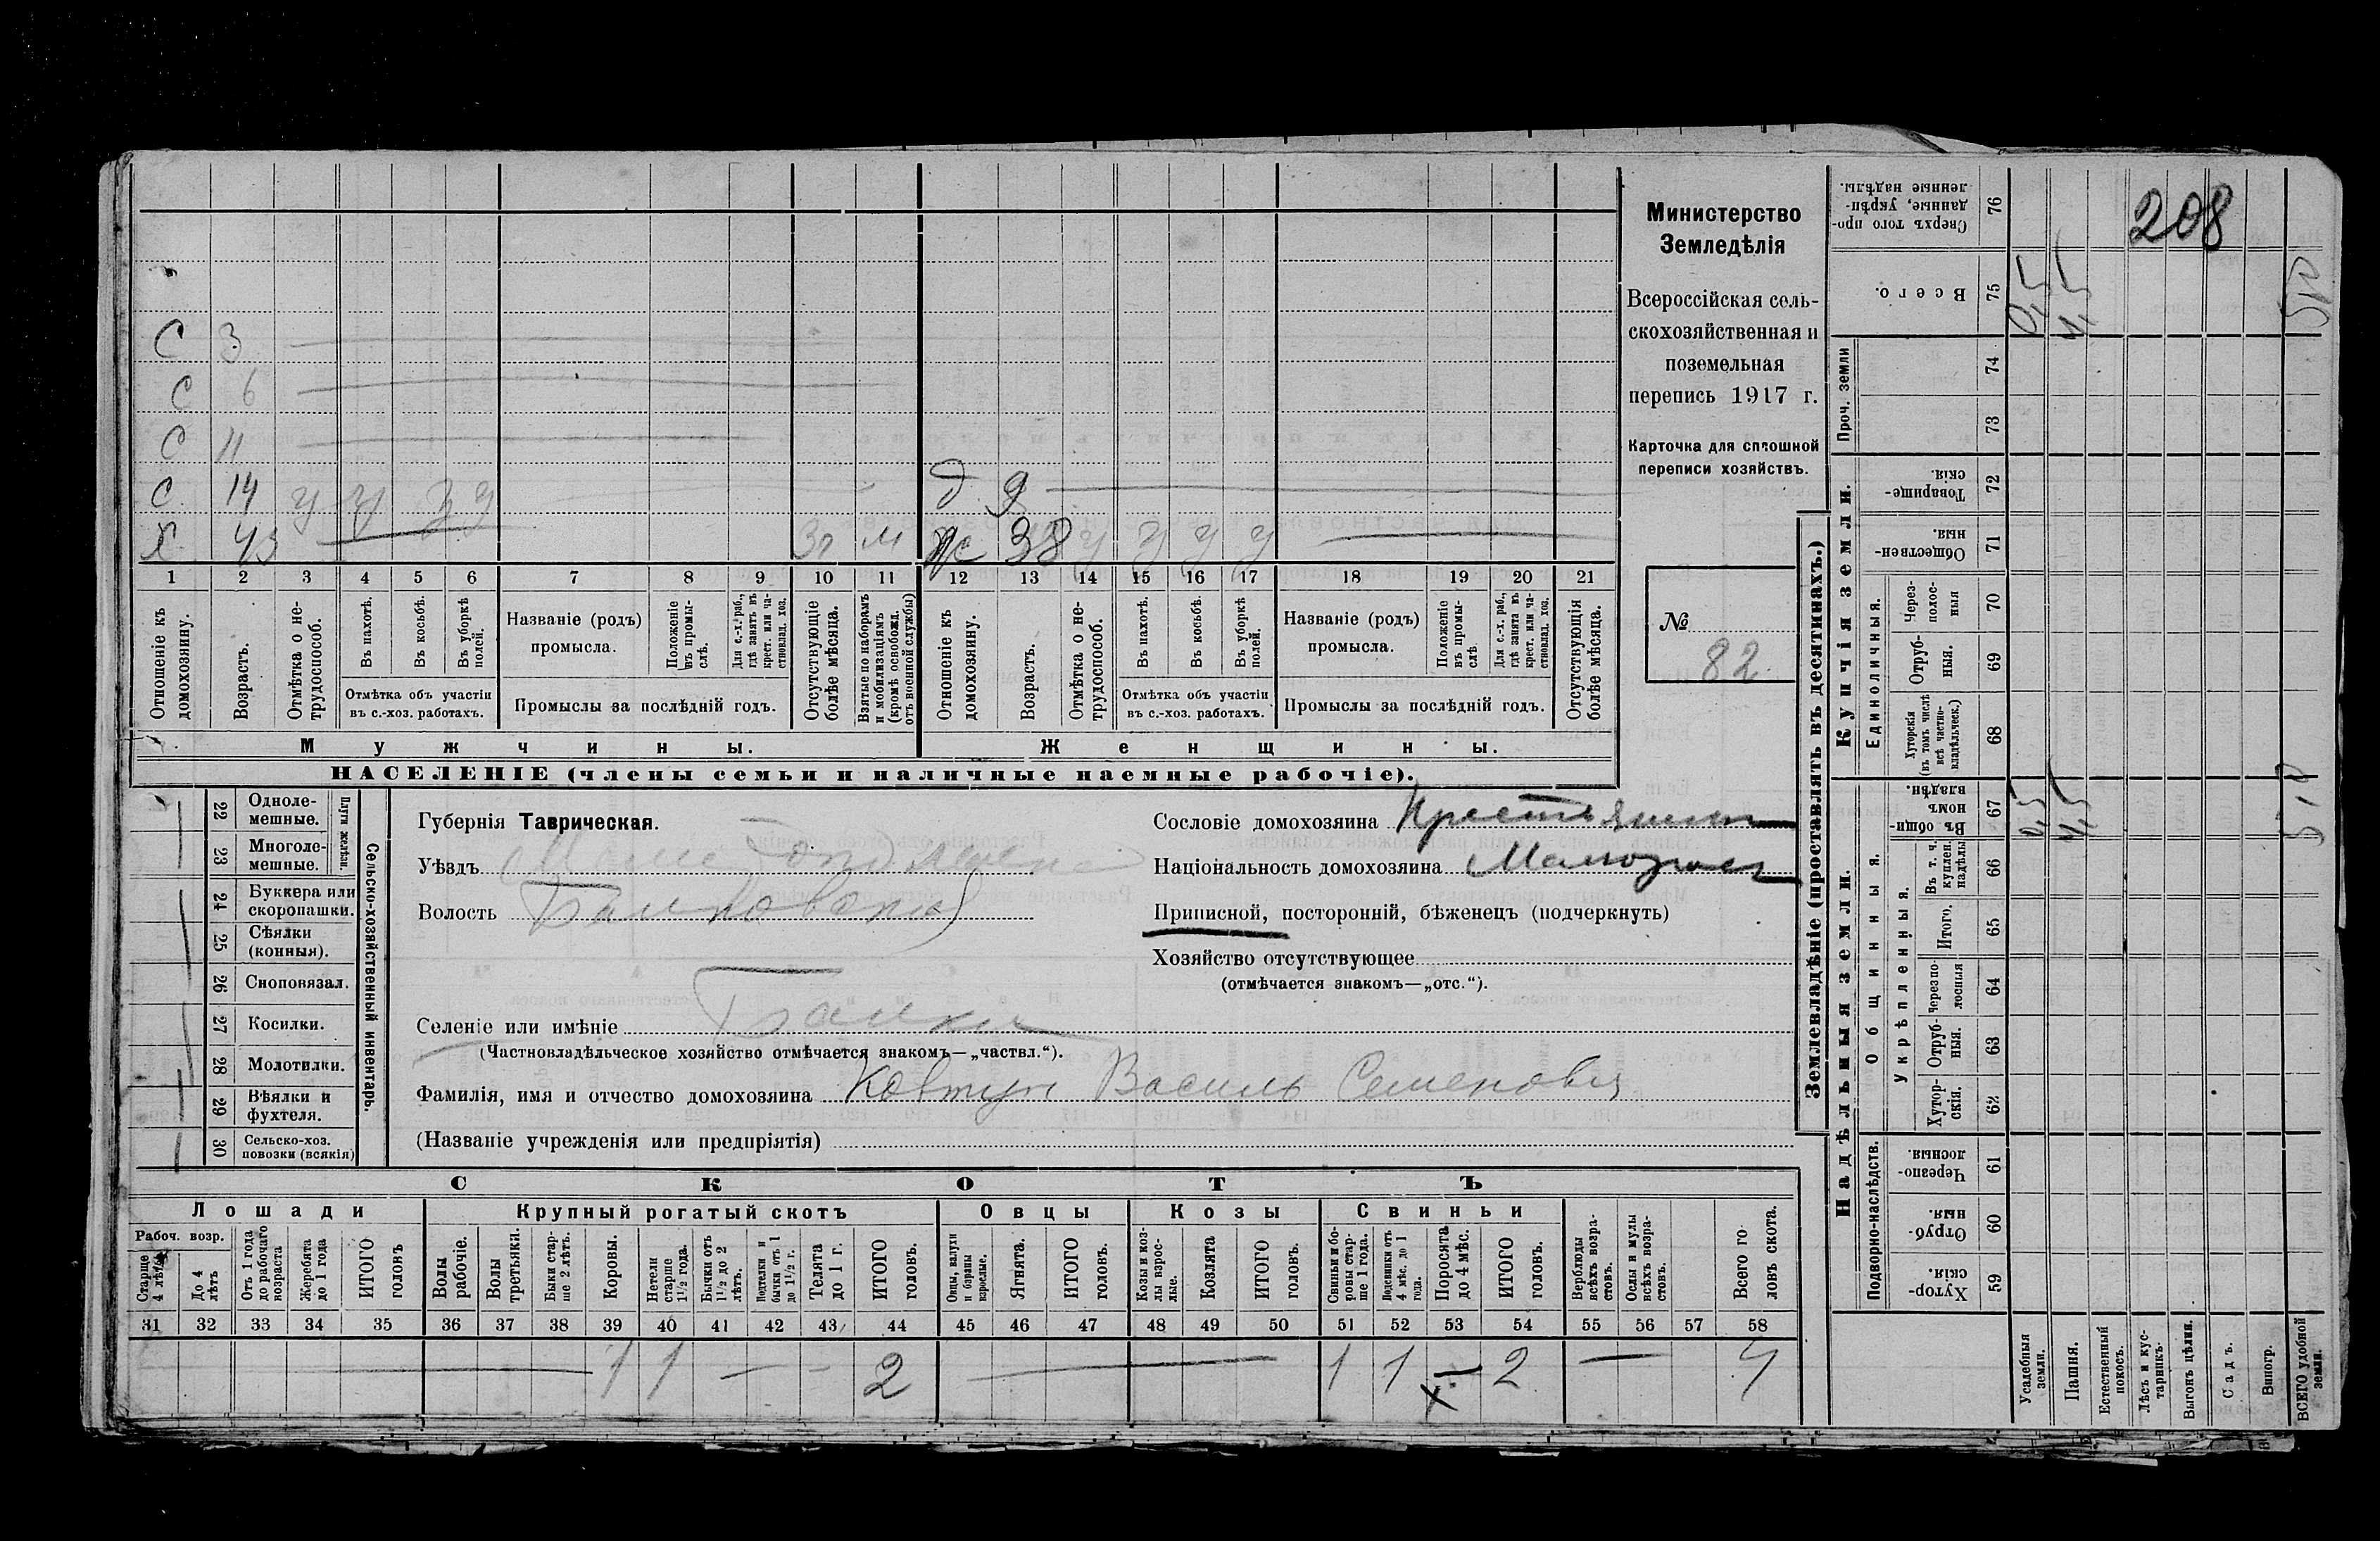 208
Министерство
Земледѣлія
Всероссійская сель-
скохозяйственная и
поземельная
перепись 1917 г.
Карточка для сплошной
переписи хозяйствъ.
№
82
С 3
С 6
С 11
С. 14 у у у у
д 9
Х 43
м ж 38 у у у у
1 2 3 4 5 6 7 8 9 10 11 12 13 14 15 16 17 18 19 20 21
Отношеніе къ домохозяину.
Возрастъ.
Отмѣтка о не-трудоспособ.
Въ пахотѣ.
Въ косьбѣ.
Въ уборкѣ полей.
Отмѣтка объ участіи
въ с.-хоз. работахъ.
Названіе (родъ)
промысла.
Положеніе въ промы-слѣ.
Для с.-х. раб., гдѣ занятъ въ крест. или ча-стновлад. хоз.
Промыслы за послѣдній годъ.
Отсутствующіе болѣе мѣсяца.
Взятые по наборамъ и мобилизаціямъ (кромѣ освобожд. отъ военной службы)
Отношеніе къ домохозяину.
Возрастъ.
Отмѣтка о не-трудоспособ.
Въ пахотѣ.
Въ косьбѣ.
Въ уборкѣ полей.
Отмѣтка объ участіи
въ с.-хоз. работахъ.
Названіе (родъ)
промысла.
Положеніе въ промы-слѣ.
Для с.-х. раб., гдѣ занята въ крест. или ча-стновлад. хоз.
Промыслы за послѣдній годъ.
Отсутствующія болѣе мѣсяца.
Мужчины.
Женщины.
НАСЕЛЕНІЕ (члены семьи и наличные наемные рабочіе).
22 Одноле-мешные.
23 Многоле-мешные.
Плуги желѣзн.
24 Буккера или скоропашки.
25 Сѣялки (конныя).
26 Сноповязал.
27 Косилки.
28 Молотилки.
29 Вѣялки и фухтеля.
30 Сельско-хоз. повозки (всякія)
Сельско-хозяйственный инвентарь.
Губернія Таврическая.
Уѣздъ Мелитопольскій
Волость Балковская
Селеніе или имѣніе Балки
(Частновладѣльческое хозяйство отмѣчается знакомъ—„частвл.“).
Фамилія, имя и отчество домохозяина Ковтун Василь Семеновъ
(Названіе учрежденія или предпріятія)
Сословіе домохозяина Крестьянин
Національность домохозяина Малоросс
Приписной, посторонній, бѣженецъ (подчеркнуть)
Хозяйство отсутствующее
(отмѣчается знакомъ—„отс.“).
СКОТЪ
Лошади
Крупный рогатый скотъ
Овцы
Козы
Свиньи
Рабоч. возр.
Старше 4 лѣтъ
До 4 лѣтъ
Отъ 1 года до рабочаго возраста
Жеребята до 1 года
ИТОГО головъ
Волы рабочіе.
Волы третьяки.
Быки стар-ше 2 лѣтъ.
Коровы.
Нетели старше 1½ года.
Бычки отъ 1½ до 2 лѣтъ.
Подтелки и бычки отъ 1 до 1½ г.
Телята до 1 г.
ИТОГО головъ.
Овцы, валухи и бараны взрослые.
Ягнята.
ИТОГО головъ.
Козы и коз-лы взрос-лые.
Козлята
ИТОГО головъ.
Свиньи и бо-ровы стар-ше 1 года.
Подсвинки отъ 4 мѣс. до 1 года.
Поросята до 4 мѣс.
ИТОГО головъ.
Верблюды всѣхъ возра-стовъ.
Ослы и мулы всѣхъ возра-стовъ.
Всего го-ловъ скота.
31 32 33 34 35 36 37 38 39 40 41 42 43 44 45 46 47 48 49 50 51 52 53 54 55 56 57 58
1 1 — - 2 — 1 1 — 2 — 4
х
Землевладѣніе (проставлять въ десятинахъ.)
Надѣльныя земли.
Купчія земли.
Проч. земли
Подворно-наслѣдств.
Общинныя.
Укрѣпленныя.
Единоличныя.
Сверхъ того про-данные, укрѣп-ленные надѣлы. 76
Всего. 75
74
73
Товарище-скія 72
Обществен-ныя. 71
Через-полос-ныя 70
Отруб-ныя. 69
Хуторскія (въ томъ числѣ всѣ частно-владѣльческ.) 68
Въ общи-номъ владѣн. 67
Въ т. ч. куплен. надѣлы 66
Итого. 65
Черезпо-лосныя 64
Отруб-ныя. 63
Хутор-скія. 62
Черезпо-лосныя. 61
Отруб-ныя. 60
Хутор-скія. 59
Усадебныя земли.
Пашня.
Естественный покосъ.
Лѣсъ и кус-тарникъ.
Выгонъ цѣлин.
Садъ.
Виногр.
ВСЕГО удобной земли.
0,5 4,5 5,0
0,5 4,5 5,0